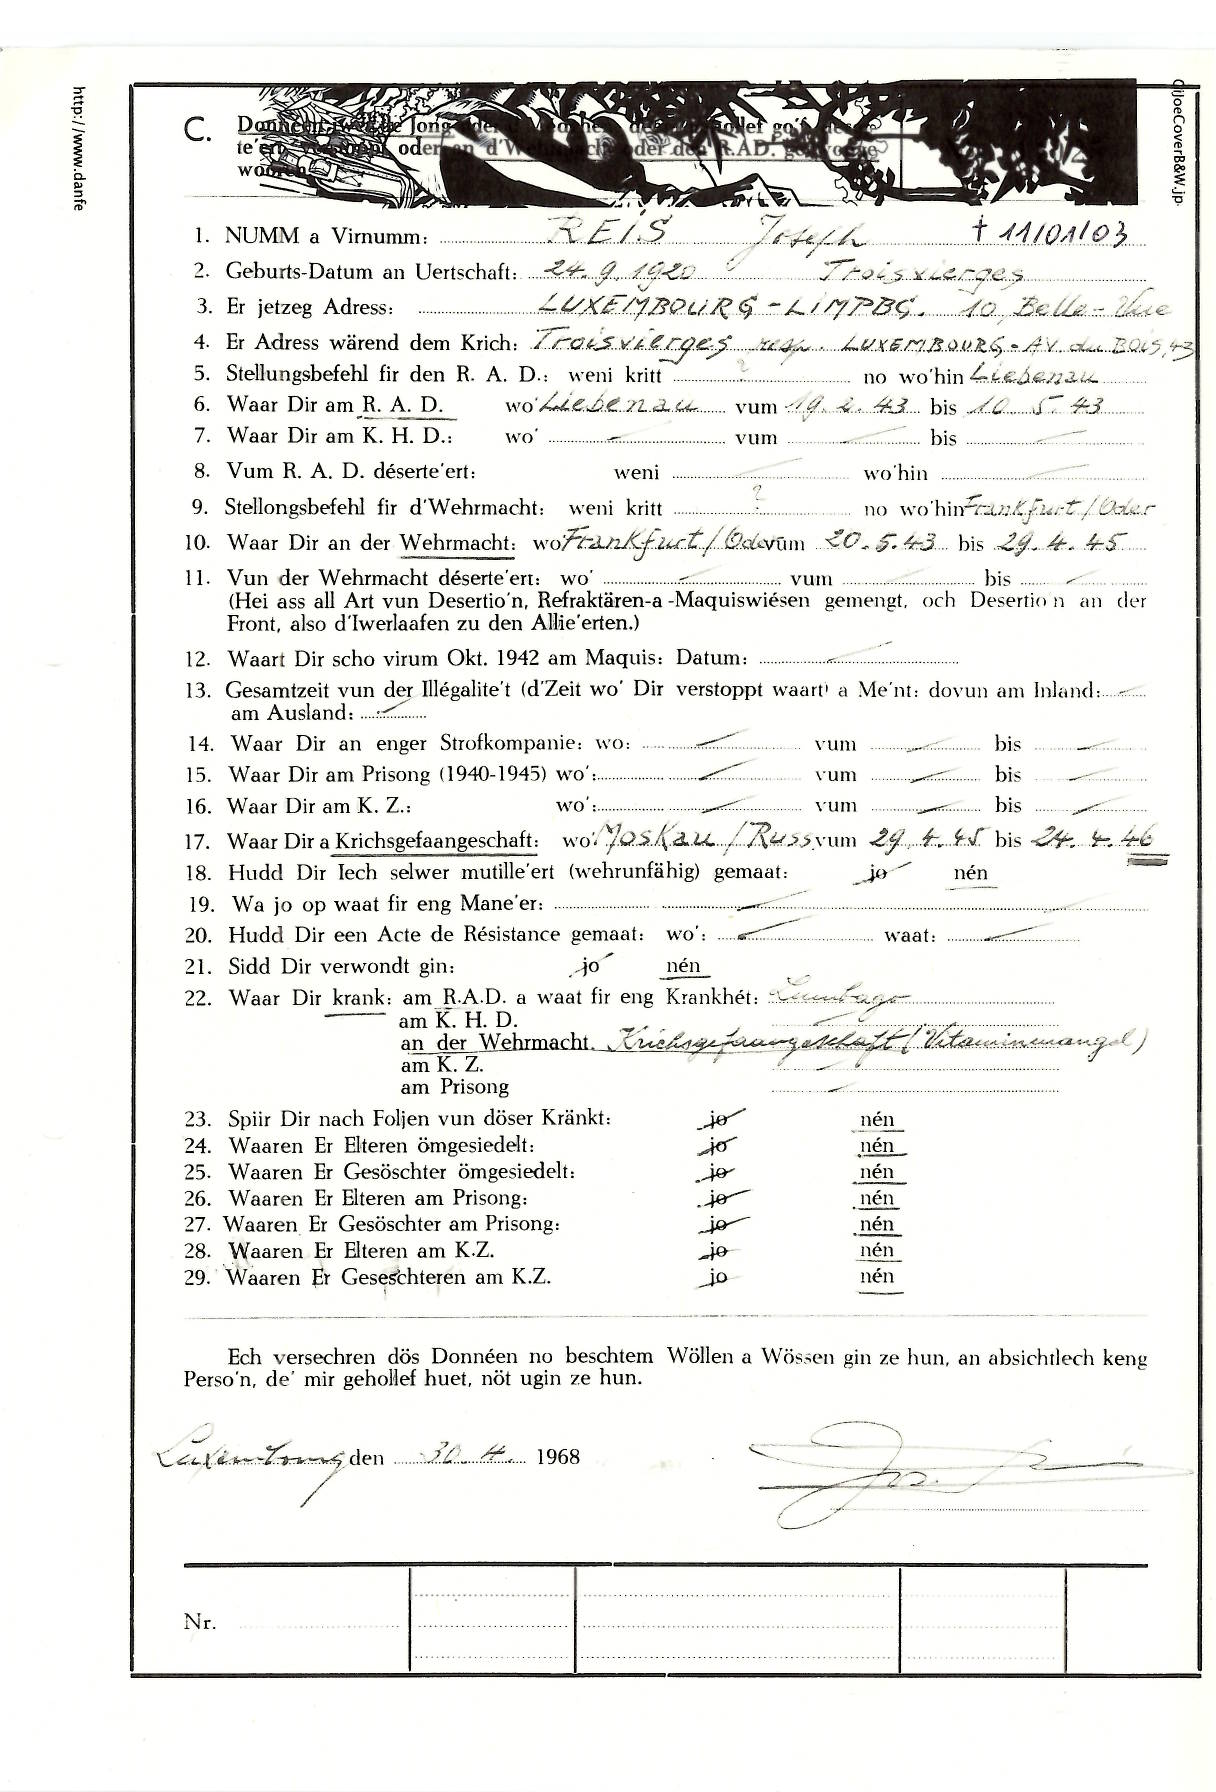 http://www.danfe
GiJoeCoverB&W.jp
C. Donnéen iwer de Jong oder
te'ert, verstoppt oder an d'Wehrmacht oder den R.AD. gezwonge
wooren
1. NUMM a Virnumm: REIS Joseph † 11/01/03
2. Geburts-Datum an Uertschaft: 24. 9. 1920 Troisvierges
3. Er jetzeg Adress: LUXEMBOURG - LIMPBG. 10, Belle-Vue
4. Er Adress wärend dem Krich: Troisvierges resp. LUXEMBOURG - AV. du BOIS, 43
5. Stellungsbefehl fir den R. A. D.: weni kritt ? no wo'hin Liebenau
6. Waar Dir am R. A. D. wo' Liebenau vum 19. 2. 43 bis 10. 5. 43
7. Waar Dir am K. H. D.: wo' — vum — bis —
8. Vum R. A. D. déserte'ert: weni — wo'hin —
9. Stellongsbefehl fir d'Wehrmacht: weni kritt ? no wo'hin Frankfurt/Oder
10. Waar Dir an der Wehrmacht: wo' Frankfurt/Oder vum 20. 5. 43 bis 29. 4. 45
11. Vun der Wehrmacht déserte'ert: wo' — vum — bis —
(Hei ass all Art vun Desertio'n, Refraktären-a -Maquiswiésen gemengt, och Desertio'n an der
Front, also d'Iwerlaafen zu den Allie'erten.)
12. Waart Dir scho virum Okt. 1942 am Maquis: Datum: —
13. Gesamtzeit vun der Illégalite't (d'Zeit wo' Dir verstoppt waart' a Me'nt: dovun am Inland: —
am Ausland: —
14. Waar Dir an enger Strofkompanie: wo: — vum — bis —
15. Waar Dir am Prisong (1940-1945) wo': — vum — bis —
16. Waar Dir am K. Z.: wo': — vum — bis —
17. Waar Dir a Krichsgefaangeschaft: wo' Moskau / Russ. vum 29. 4. 45 bis 24. 4. 46
18. Hudd Dir Iech selwer mutille'ert (wehrunfähig) gemaat: jo nén
19. Wa jo op waat fir eng Mane'er: —
20. Hudd Dir een Acte de Résistance gemaat: wo': — waat: —
21. Sidd Dir verwondt gin: jo nén
22. Waar Dir krank: am R.A.D. a waat fir eng Krankhét: Lumbago
am K. H. D. —
an der Wehrmacht. Krichsgefaangeschaft (Vitaminmangel)
am K. Z. —
am Prisong —
23. Spiir Dir nach Foljen vun döser Kränkt: jo nén
24. Waaren Er Elteren ömgesiedelt: jo nén
25. Waaren Er Gesöschter ömgesiedelt: jo nén
26. Waaren Er Elteren am Prisong: jo nén
27. Waaren Er Gesöschter am Prisong: jo nén
28. Waaren Er Elteren am K.Z. jo nén
29. Waaren Er Geseschteren am K.Z. jo nén
Ech versechren dös Donnéen no beschtem Wöllen a Wössen gin ze hun, an absichtlech keng
Perso'n, de' mir gehollef huet, nöt ugin ze hun.
Luxembourg den 30. 4. 1968
Nr.